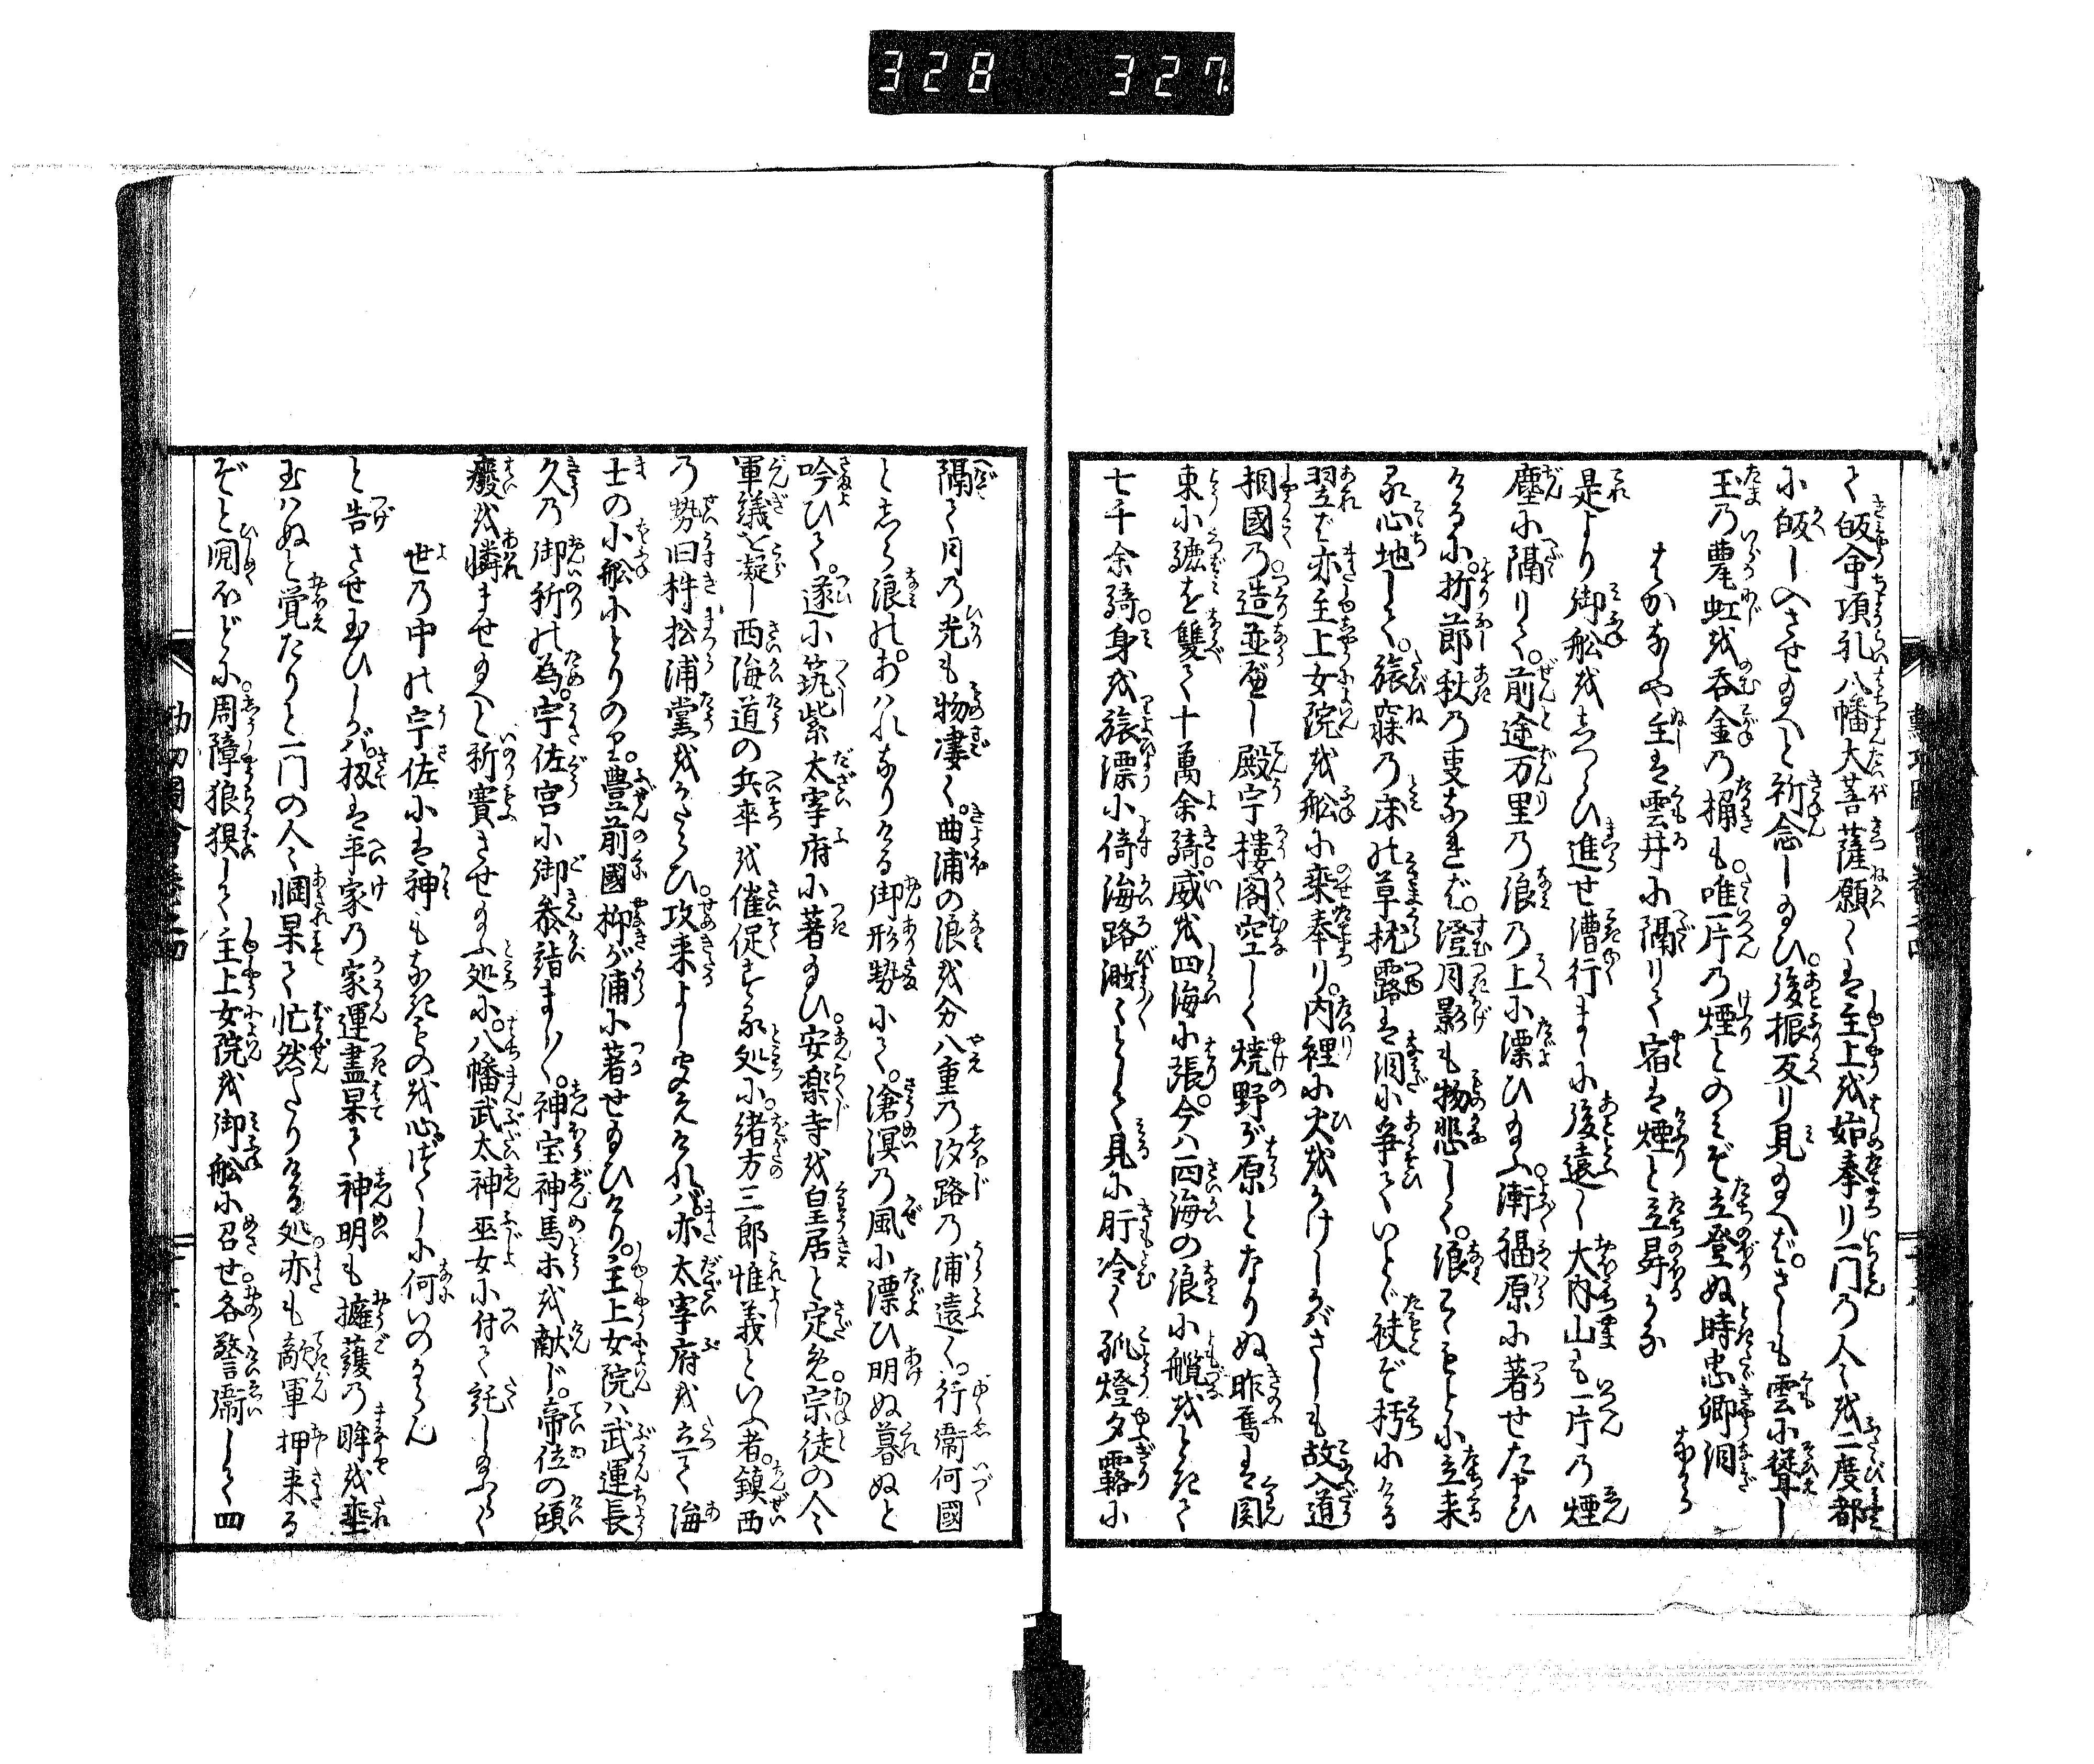 328 327
て皈命頂礼八幡大菩薩願くは主上を始奉り一門の人々を二度都
に皈し入させ給へと祈念し給ひ。後振反り見給へば。さしも雲に聳し
玉の甍虹を呑金の桷も。唯一片の煙とのみぞ立登ぬ時忠卿泪
ながら
はかなしや主は雲井に隔りて宿は煙と立昇るかな
是より御舩をしつらひ進せ漕行まゝに後遠く大内山も一片の煙
塵に隔りて。前途万里の浪の上に漂ひ給ふ。漸福原に著せたまひ
けるに。折節秋の叓なれば。澄月影も物悲しく。浪こゝもとに立来
る心地して。旅寐の床の草枕露は泪に争ていとゞ袂ぞ朽にける
翌れば亦主上女院を舩に乗奉り。内裡に火をかけしがさしも故入道
相國の。造並べし殿宇樓閣空しく焼野が原となりぬ昨焉は関
東に轡を雙て十萬余騎。威を四海に張。今ハ四海の浪に艫をときて
七千余騎。身を旅漂に倚海路渺々として見に肝冷く孤燈夕霧に
隔て月の光も物凄く。曲浦の浪を分八重の汐路の浦遠く。行衛何國
としら浪の。あハれなりける御形勢にて。滄溟の風に漂ひ明ぬ暮ぬと
吟ひて。遂に筑紫太宰府に著給ひ。安楽寺を皇居と定め。宗徒の人々
軍議を凝し西海道の兵卒を催促する処に。緒方三郎惟義といふ者。鎮西
の勢臼杵松浦党をかたらひ。攻来よし聞えけれバ。亦太宰府を立て海
士の小舩にとりのり。豊前國柳が浦に著せ給ひけり。主上女院ハ武運長
久の御祈の為。宇佐宮に御参詣まし〳〵。神宝神馬ホを献じ。帝位の頽
癈を憐ませ給へと祈賽させ給ふ処に。八幡武太神巫女に付て託し給ふらく
世の中の宇佐には神もなきものを心づくしに何いのるらん
と告させ玉ひしかバ。扨は平家の家運盡果て神明も擁護の眸を垂
玉ハぬと覚たりと一門の人々惘果て忙然たりける処。亦も敵軍押来る
ぞと鬩ほどに。周障狼狽して主上女院を御舩に召せ。各警衛して四